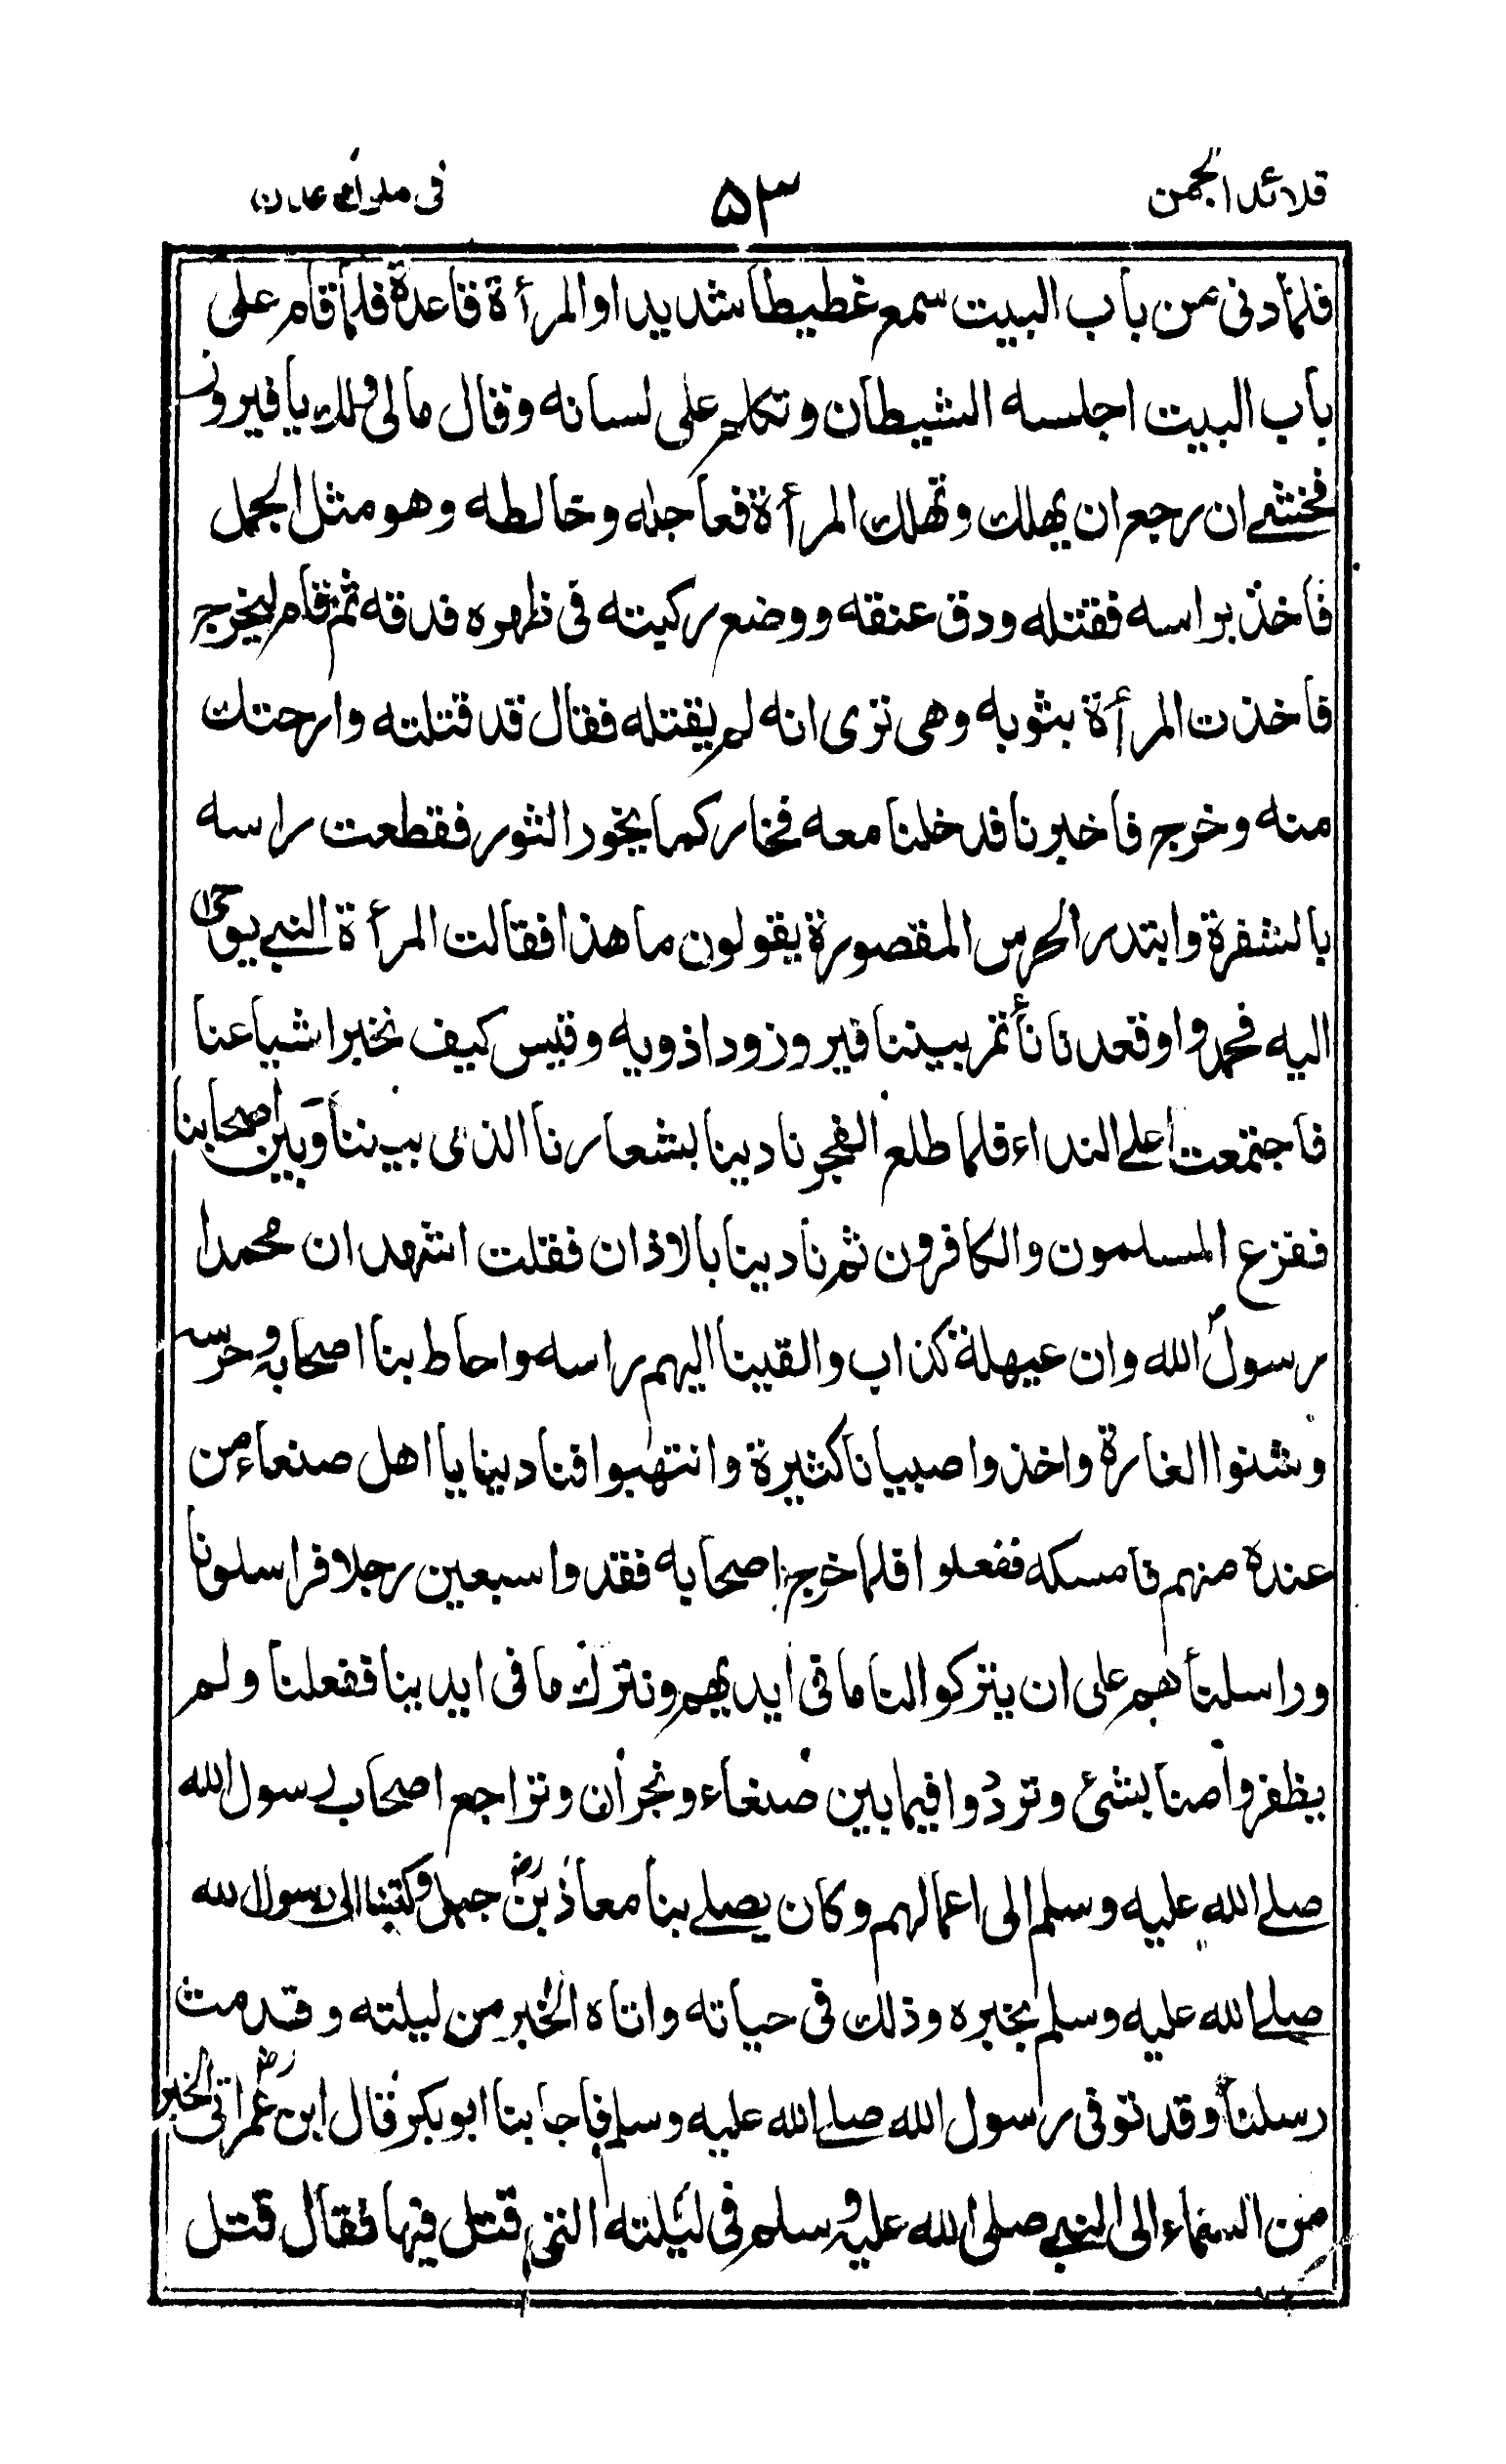 قلائد الجمن
٥٣
فى ملوك عدن
فلما دنى من باب البيت سمع غطيطا شديدا والمرأة قاعدة فلما قام على
باب البيت اجلسه الشيطان وتكلم على لسانه وقال مالى ولك يا فيروز
فخشے ان رجع ان يهلك وتهلك المرأة فعاجله وخالطه وهو مثل الجمل
فاخذ براسه فقتله ودق عنقه ووضع ركبته فى ظهره فدقه ثم قام ليخرج
فاخذت المرأة بثوبه وهى ترى انه لم يقتله فقال قد قتلته وارحتك
منه وخرج فاخبرنا فدخلنا معه فخار كما يخور الثور فقطعت راسه
بالشفرة وابتدر الحرس المقصورة يقولون ما هذا فقالت المرأة النبے يوحى
اليه فخمدوا وقعدنا نأتمر بيننا فيروز وداذويه وقيس كيف نخبر اشياعنا
فاجتمعت اعلے النداء فلما طلع الفجر نادينا بشعارنا الذى بيننا وبين اصحابنا
ففزع المسلمون والكافرون ثم نادينا بالاذان فقلت اشهد ان محمدا
رسول الله وان عيهلة كذاب والقينا اليهم راسه واحاط بنا اصحابه وحرسه
وشنوا الغارة واخذوا صبيانا كثيرة وانتهبوا فنادينا يا اهل صنعاء من
عنده منهم فامسكه ففعلوا فلما خرج اصحابه فقدوا سبعين رجلا فراسلونا
وراسلناهم على ان يتركوا لنا ما فى ايديهم ونترك ما فى ايدينا ففعلنا ولم
يظفروا منا بشئ وتردوا فيما بين صنعاء ونجران وتراجع اصحاب رسول الله
صلے الله عليه وسلم الى اعمالهم وكان يصلے بنا معاذ بن جبل وكتبنا الى رسول الله
صلے الله عليه وسلم بخبره وذلك فى حياته واتاه الخبر من ليلته وقدمت
رسلنا وقد توفى رسول الله صلے الله عليه وسلم فاجابنا ابو بكر قال ابن عمر اتى الخبر
من السماء الى النبے صلى الله عليه وسلم فى ليلته التى قتل فيها فقال قتل